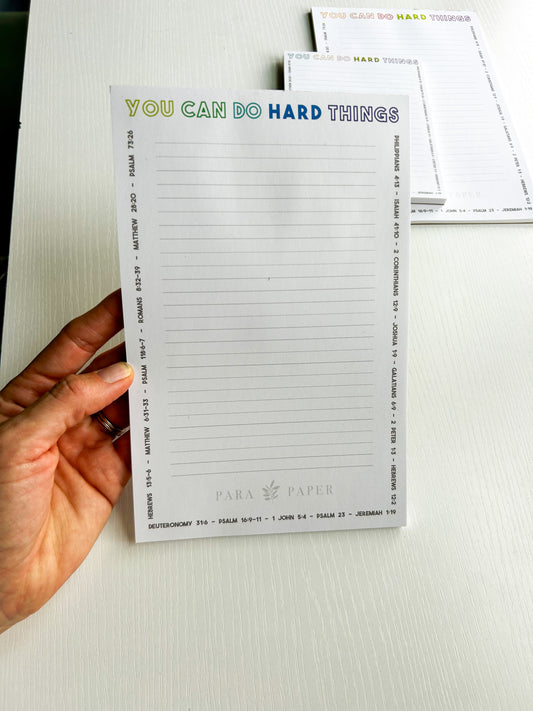 YOU CAN DO HARD THINGS
YOU CAN DO HARD THINGS
YOU CAN DO HARD THINGS
HEBREWS 13:5-6 - MATTHEW 6:31-33 - PSALM 118:6-7 - ROMANS 8:32-39 - MATTHEW 28:20 - PSALM 73:26
PHILIPPIANS 4:13 - ISAIAH 41:10 - 2 CORINTHIANS 12:9 - JOSHUA 1:9 - GALATIANS 6:9 - 2 PETER 1:3 - HEBREWS 12:2
PARA PAPER
DEUTERONOMY 31:6 - PSALM 16:9-11 - 1 JOHN 5:4 - PSALM 23 - JEREMIAH 1:19
PAPER
16:9-11 - 1 JOHN 5:4 - PSALM 23 - JEREMIAH 1:19